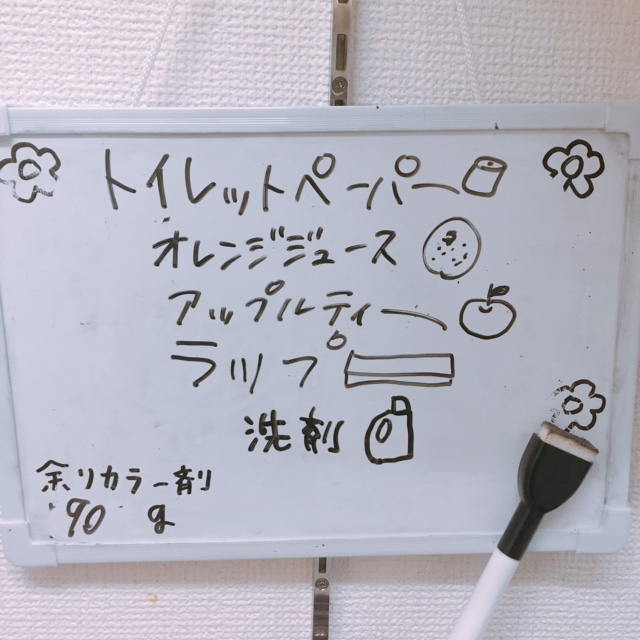 トイレットペーパー
オレンジジュース
アップルティー
ラップ
洗剤
余りカラー剤
90 g